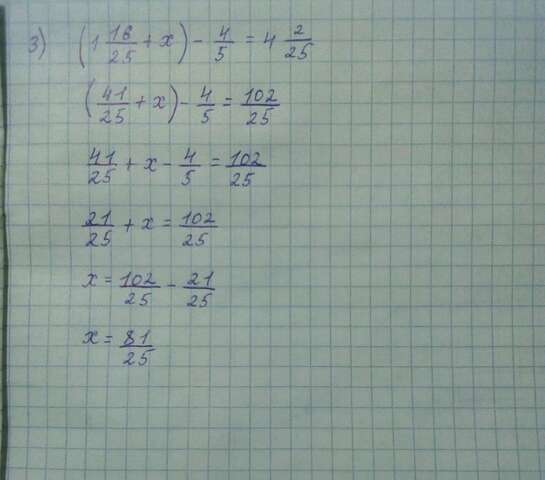 3) (1 16/25 + x) - 4/5 = 4 2/25
(41/25 + x) - 4/5 = 102/25
41/25 + x - 4/5 = 102/25
21/25 + x = 102/25
x = 102/25 - 21/25
x = 81/25